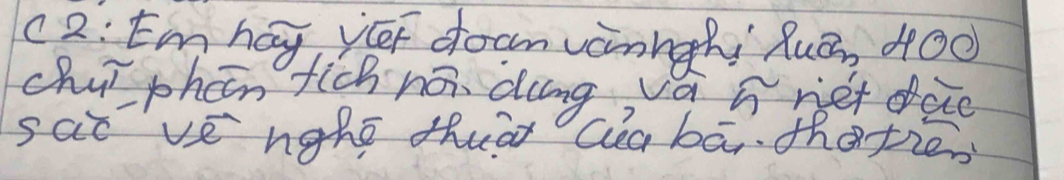 C2: Em hãy viết đoạn văn nghị luận 400
chữ phân tích nội dung và ñ nét đặc
sắc về nghệ thuật của bài thơ trên